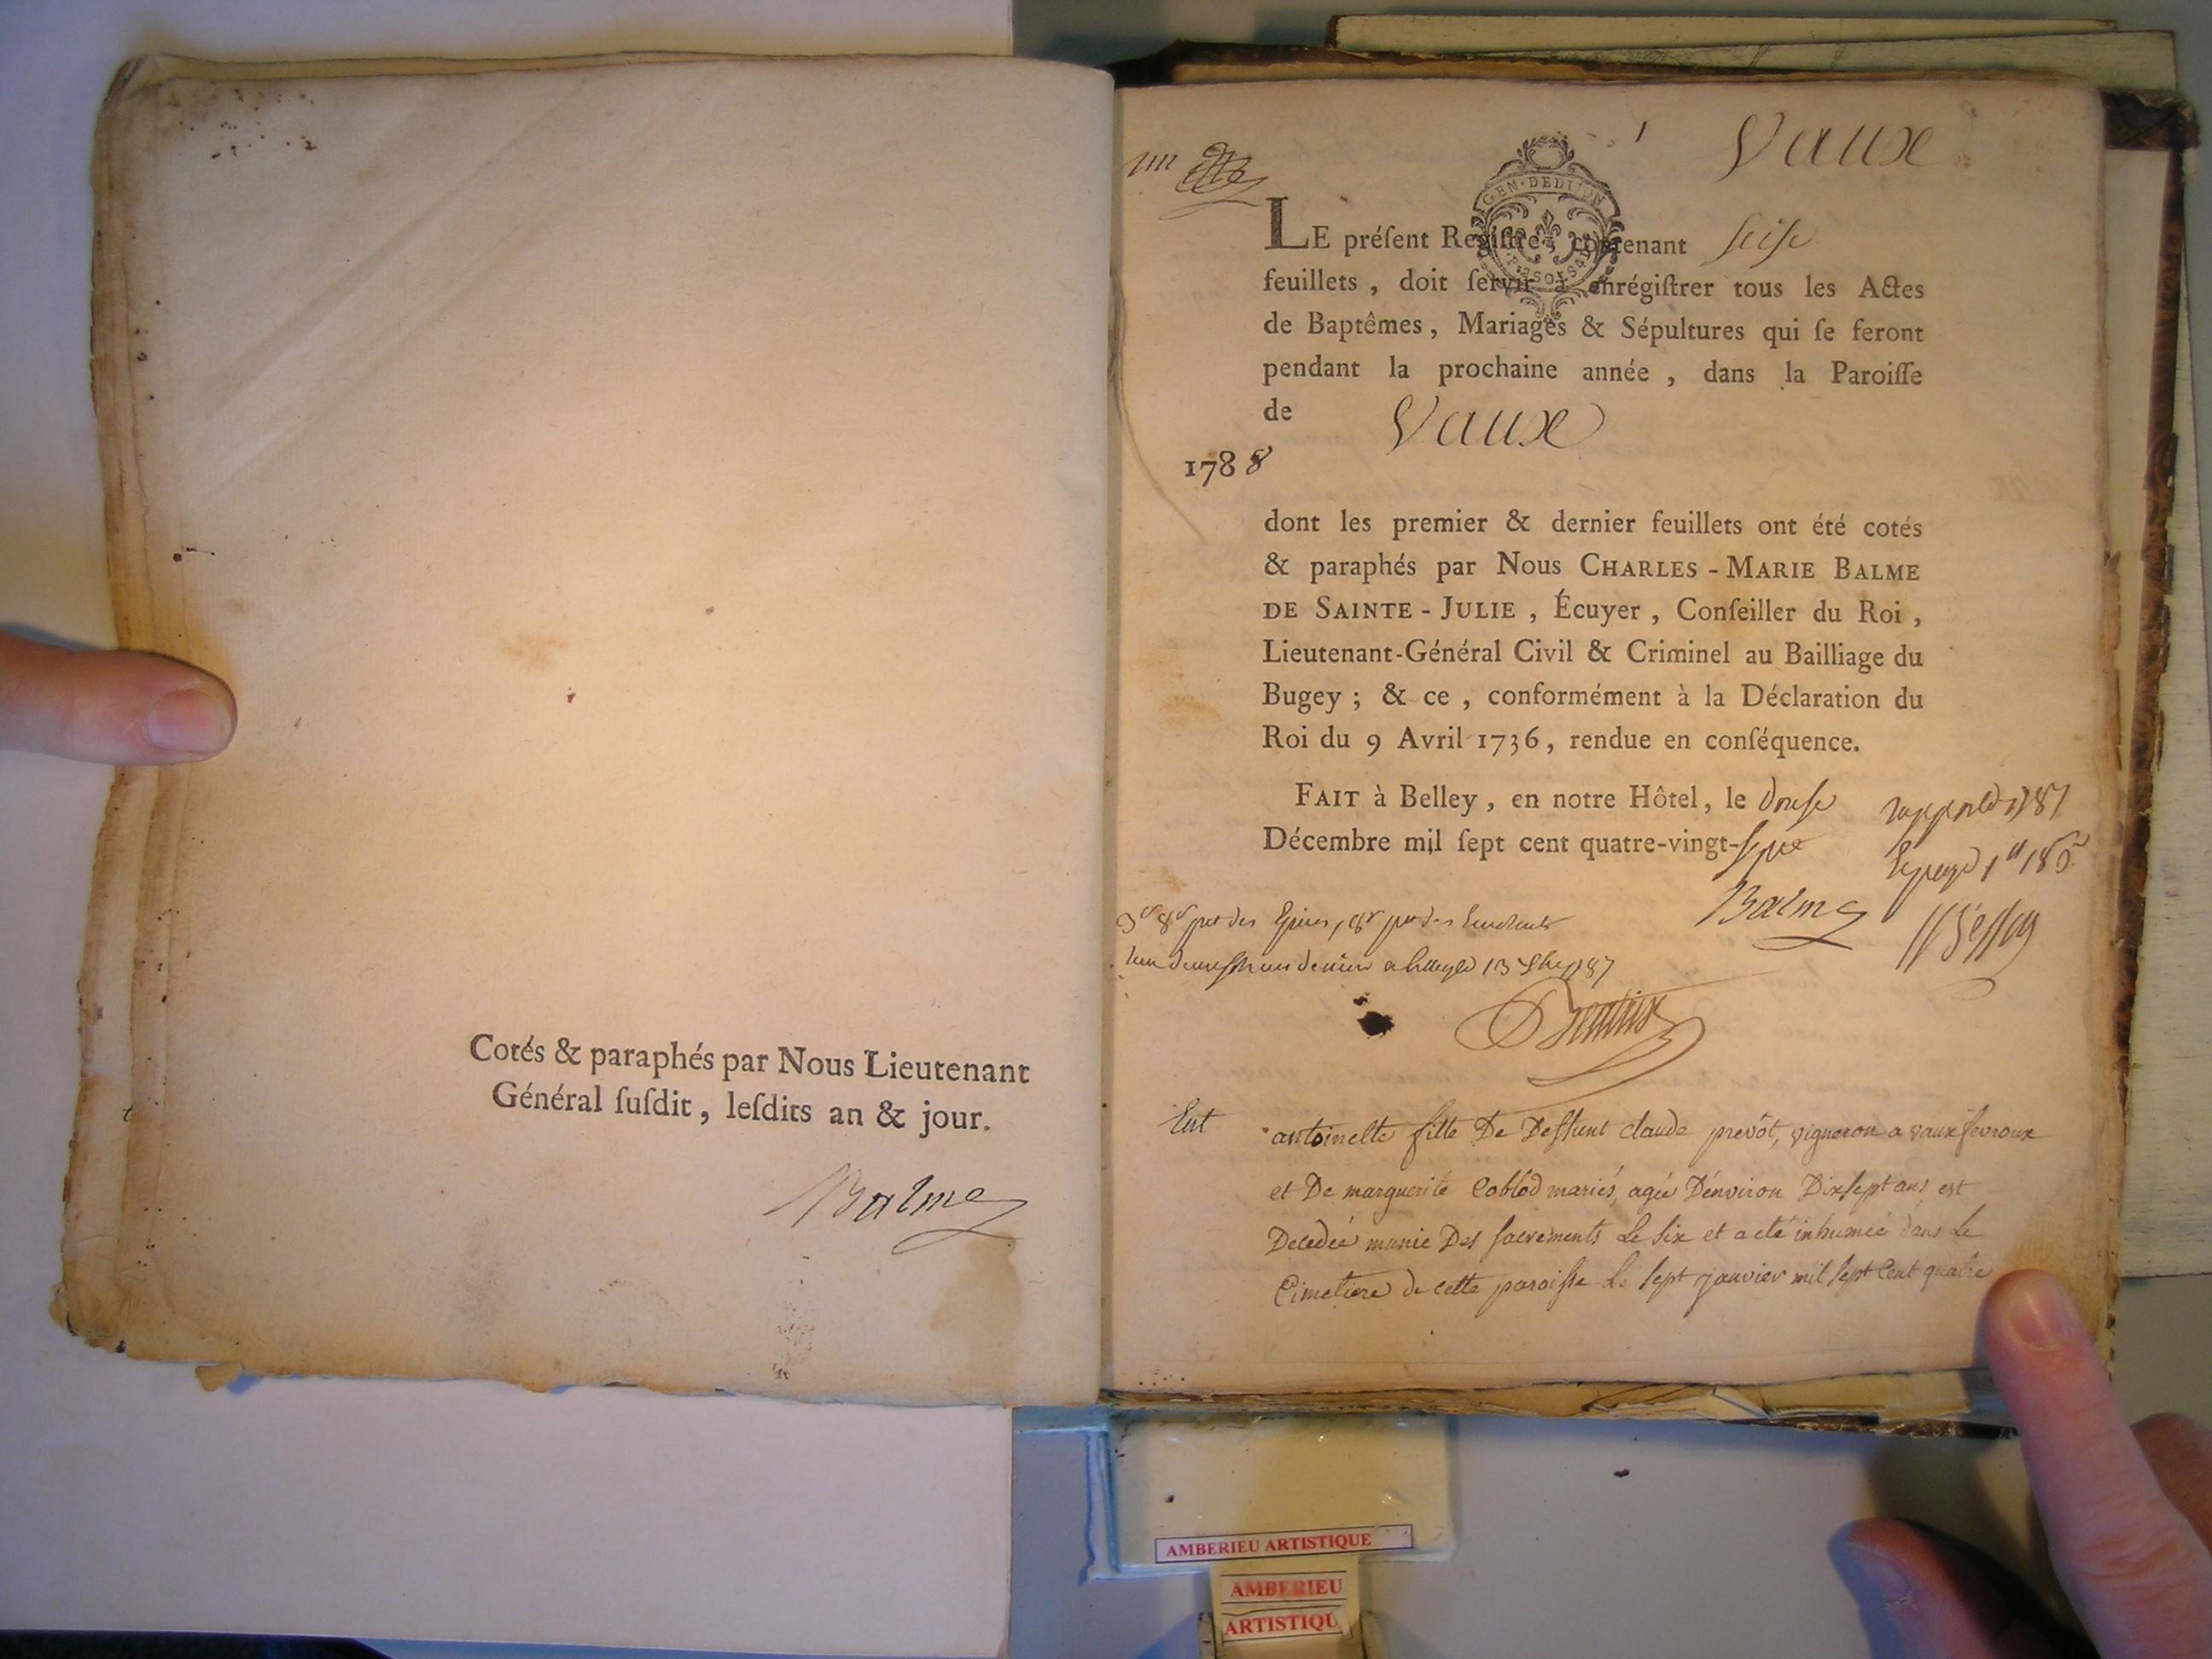 Cotés & paraphés par Nous Lieutenant
Général ſuſdit, leſdits an & jour.
Balme
1 Vaux
GEN·DEDIJON
LE préſent Regiſtre, contenant ſeiſe
feuillets, doit ſervir à enrégiſtrer tous les Actes
de Baptêmes, Mariages & Sépultures qui ſe feront
pendant la prochaine année, dans la Paroiſſe
de Vaux
1788
dont les premier & dernier feuillets ont été cotés
& paraphés par Nous CHARLES-MARIE BALME
DE SAINTE-JULIE, Écuyer, Conſeiller du Roi,
Lieutenant-Général Civil & Criminel au Bailliage du
Bugey; & ce, conformément à la Déclaration du
Roi du 9 Avril 1736, rendue en conſéquence.
FAIT à Belley, en notre Hôtel, le douſe
Décembre mil ſept cent quatre-vingt-ſept
Balme
Ent antoinette fille De Deffunt claude prevôt, vigneron a vaux fevroux
et De marguerite Coblod mariés, agée D'environ Dixsept ans est
Decedée munie Des sacrements Le six et a eté inhumée dans Le
Cimetiere de cette paroisse Le sept janvier mil sept Cent quatre
AMBERIEU ARTISTIQUE
AMBERIEU
ARTISTIQU